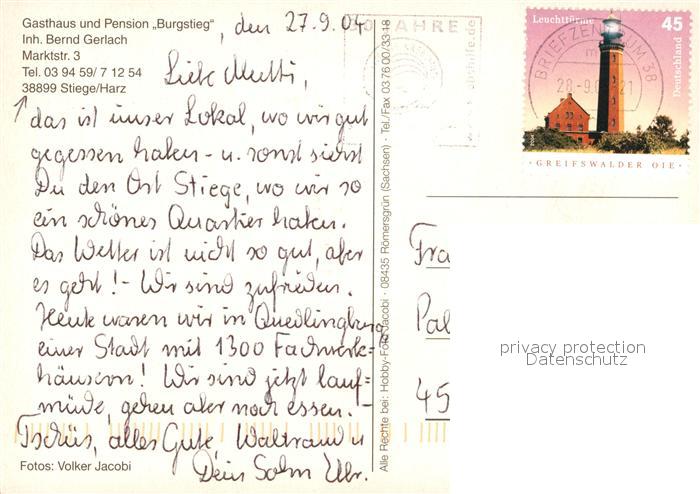 Gasthaus und Pension „Burgstieg“, den 27.9.04
Inh. Bernd Gerlach
Marktstr. 3
Tel. 03 94 59/ 7 12 54
38899 Stiege/Harz
Liebe Mutti,
das ist unser Lokal, wo wir gut
gegessen haben – u. sonst siehst
Du den Ort Stiege, wo wir so
ein schönes Quartier haben.
Das Wetter ist nicht so gut, aber
es geht! – Wir sind zufrieden.
Heute waren wir in Quedlinburg
einer Stadt mit 1300 Fachwerk=
häusern! Wir sind jetzt lauf=
müde, gehen aber noch essen. –
Tschüs, alles Gute, Waltraud u
Dein Sohn
Fotos: Volker Jacobi
Alle Rechte bei: Hobby-Foto Jacobi · 08435 Römersgrün (Sachsen) · Tel./Fax 03 76 00/33 18
JAHRE
Leuchttürme 45
Deutschland
BRIEFZENTRUM 38
GREIFSWALDER OIE
Fra
Pal
45
privacy protection
Datenschutz